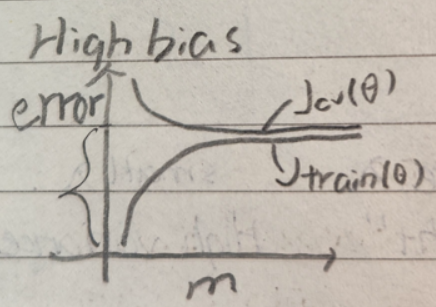 High bias
error
Jcv(θ)
Jtrain(θ)
m